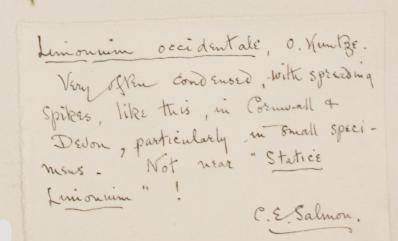 Limonium occidentale, O. Kuntze.
Very often condensed, with spreading
spikes, like this, in Cornwall &
Devon, particularly in small speci-
mens. Not near "Statice
Limonium" !
C.E. Salmon.